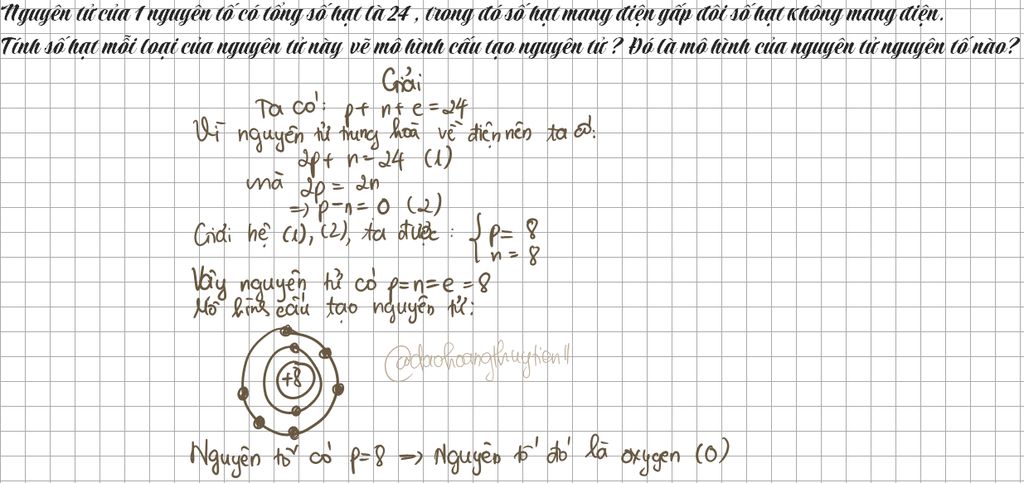 Nguyên tử của 1 nguyên tố có tổng số hạt là 24 , trong đó số hạt mang điện gấp đôi số hạt không mang điện.
Tính số hạt mỗi loại của nguyên tử này vẽ mô hình cấu tạo nguyên tử ? Đó là mô hình của nguyên tử nguyên tố nào?
Giải
Ta có: p+ n+e =24
Vì nguyên tử trung hoà về điện nên ta có:
2p+ n=24 (1)
mà 2p = 2n
=> p-n= 0 (2)
Giải hệ (1), (2), ta được : { p= 8
n = 8
Vậy nguyên tử có p=n=e=8
Mô hình cấu tạo nguyên tử:
+8
@daohoangthuytien11
Nguyên tố có p=8 => Nguyên tố đó là oxygen (O)